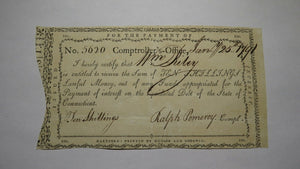 FOR THE PAYMENT OF
No. 5620 Comptroller's-Office, Jan'y 25th 1791
I hereby certify that Wm
is entitled to receive the Sum of TEN SHILLINGS
Lawful Money, out of any appropriated for the
Payment of interest on the Debt of the State of
Connecticut.
Ten Shillings Ralph Pomeroy Compt.
HARTFORD: PRINTED BY HUDSON AND GOODWIN.